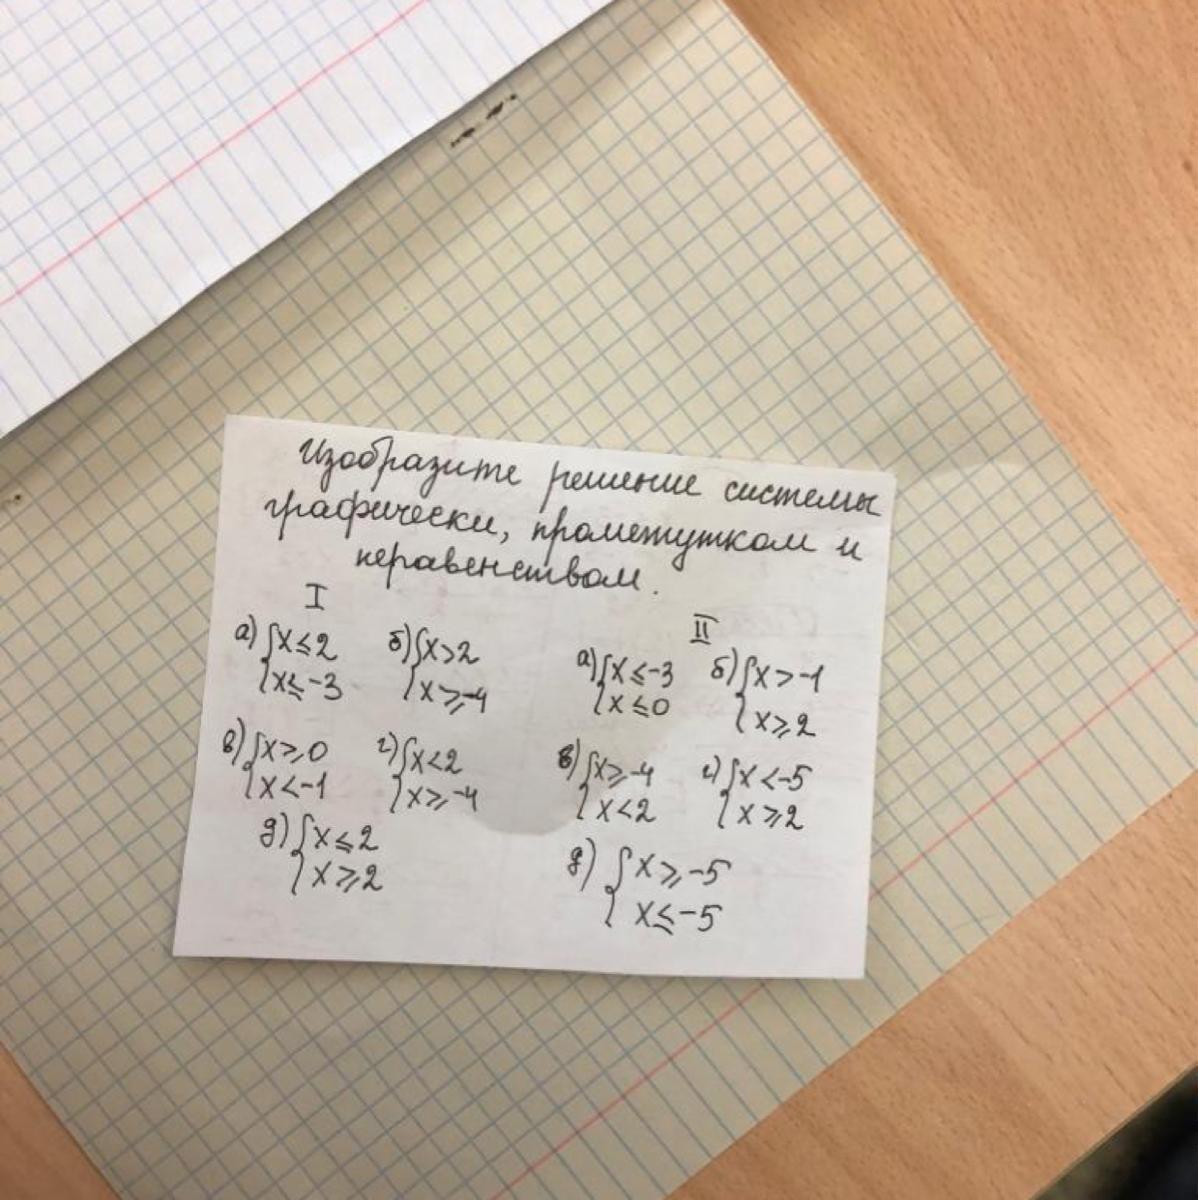 Изобразите решение системы
графически, промежутком и
неравенством.
I
II
а) {x ≤ 2
x ≤ -3
б) {x > 2
x ≥ -4
в) {x ≥ 0
x < -1
г) {x < 2
x ≥ -4
д) {x ≤ 2
x ≥ 2
а) {x ≤ -3
x ≤ 0
б) {x > -1
x ≥ 2
в) {x ≥ -4
x < 2
г) {x < -5
x ≥ 2
д) {x ≥ -5
x ≤ -5